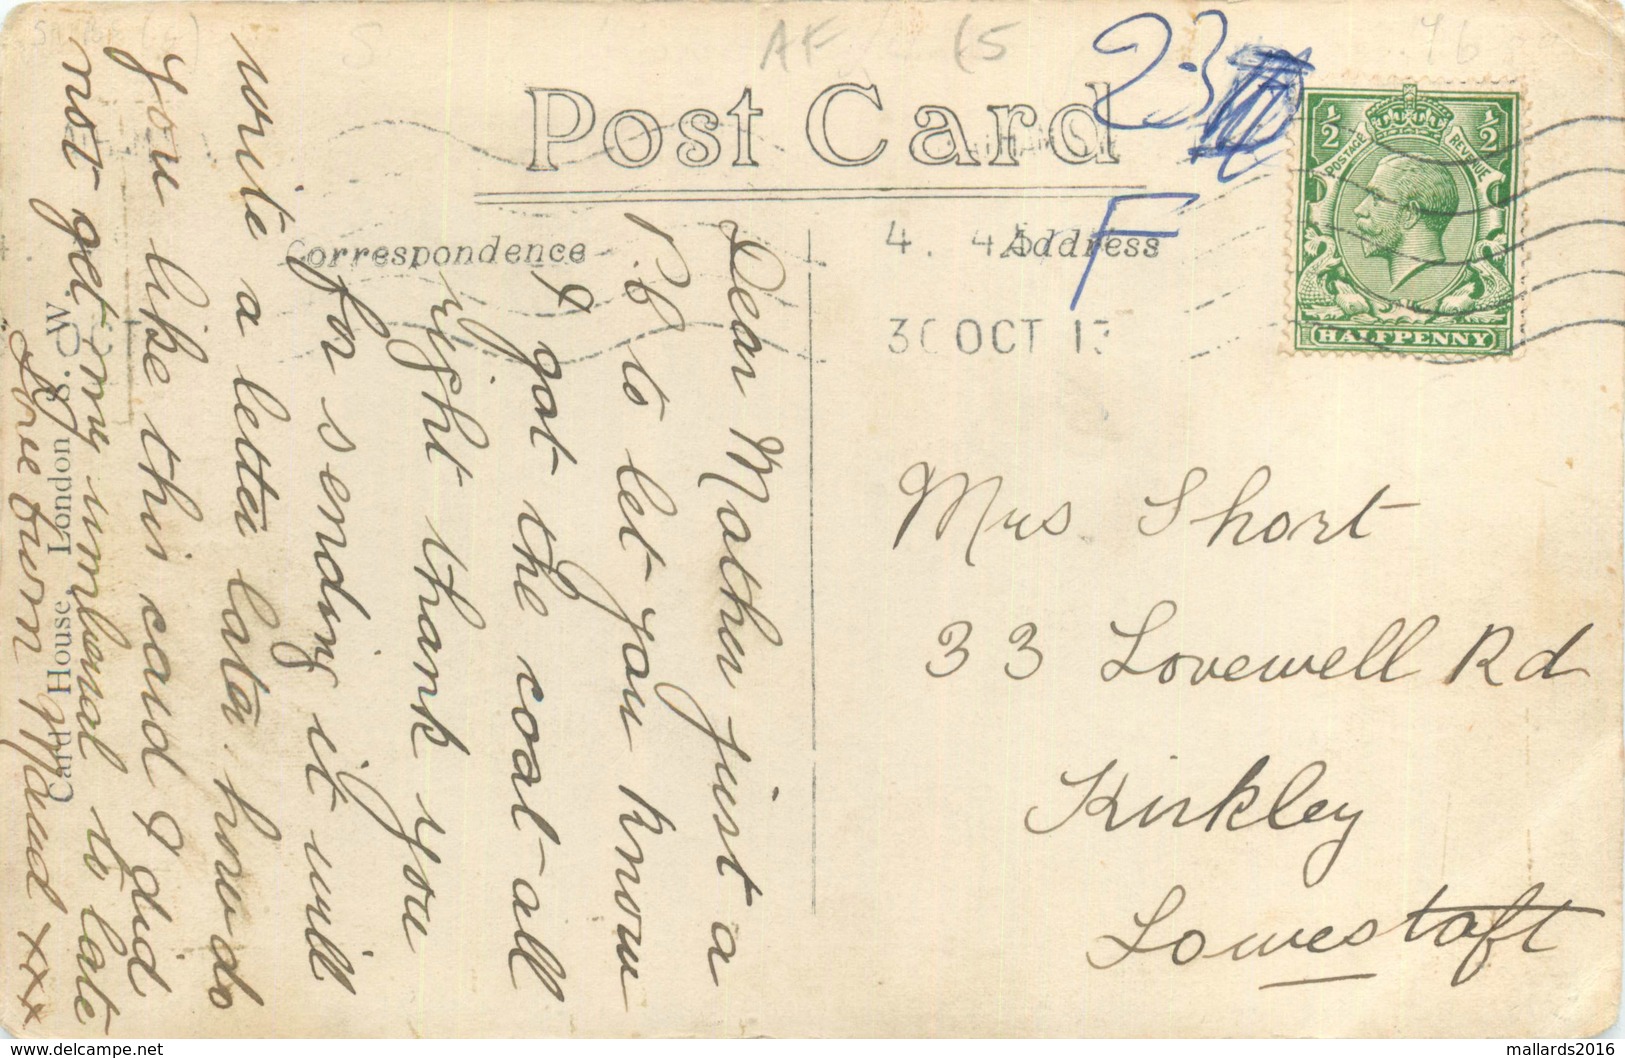 AF 65 23
76
Post Card
Correspondence
Address
F
4. 45
30 OCT 13
½ ½
POSTAGE REVENUE
HALFPENNY
Mrs Short
33 Lovewell Rd
Kirkley
Lowestoft
Dear Mother just a
P.C. to let you know
I got the coat all
right thank you
for sending it will
write a letter later how do
you like this card I did
not get my to late
love from Maud xxx
Card House London S.W.
mallards2016
-- www.delcampe.net --